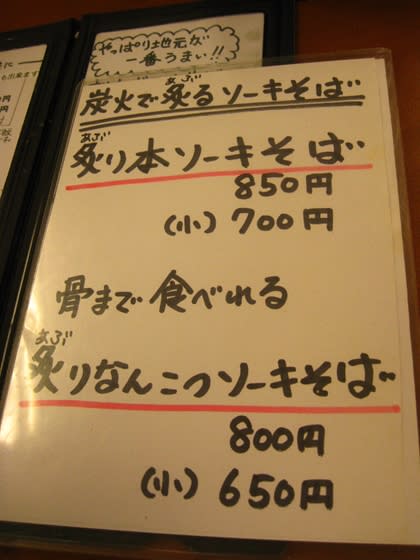 やっぱり地元が
一番うまい!!
炭火で炙るソーキそば
炙り本ソーキそば
850円
(小)700円
骨まで食べれる
炙りなんこつソーキそば
800円
(小)650円